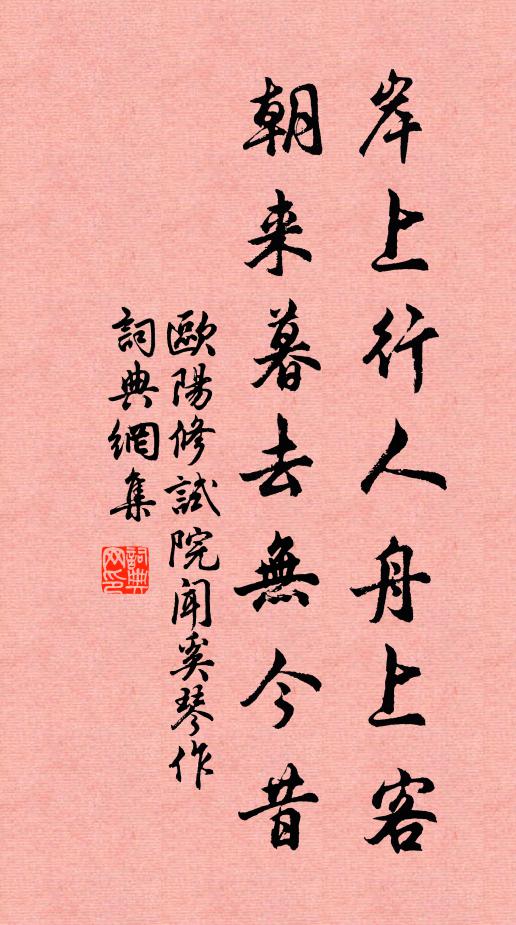 岸上行人舟上客
朝来暮去無今昔
歐陽修試院闻奚琴作
詞典網集
詞典网印